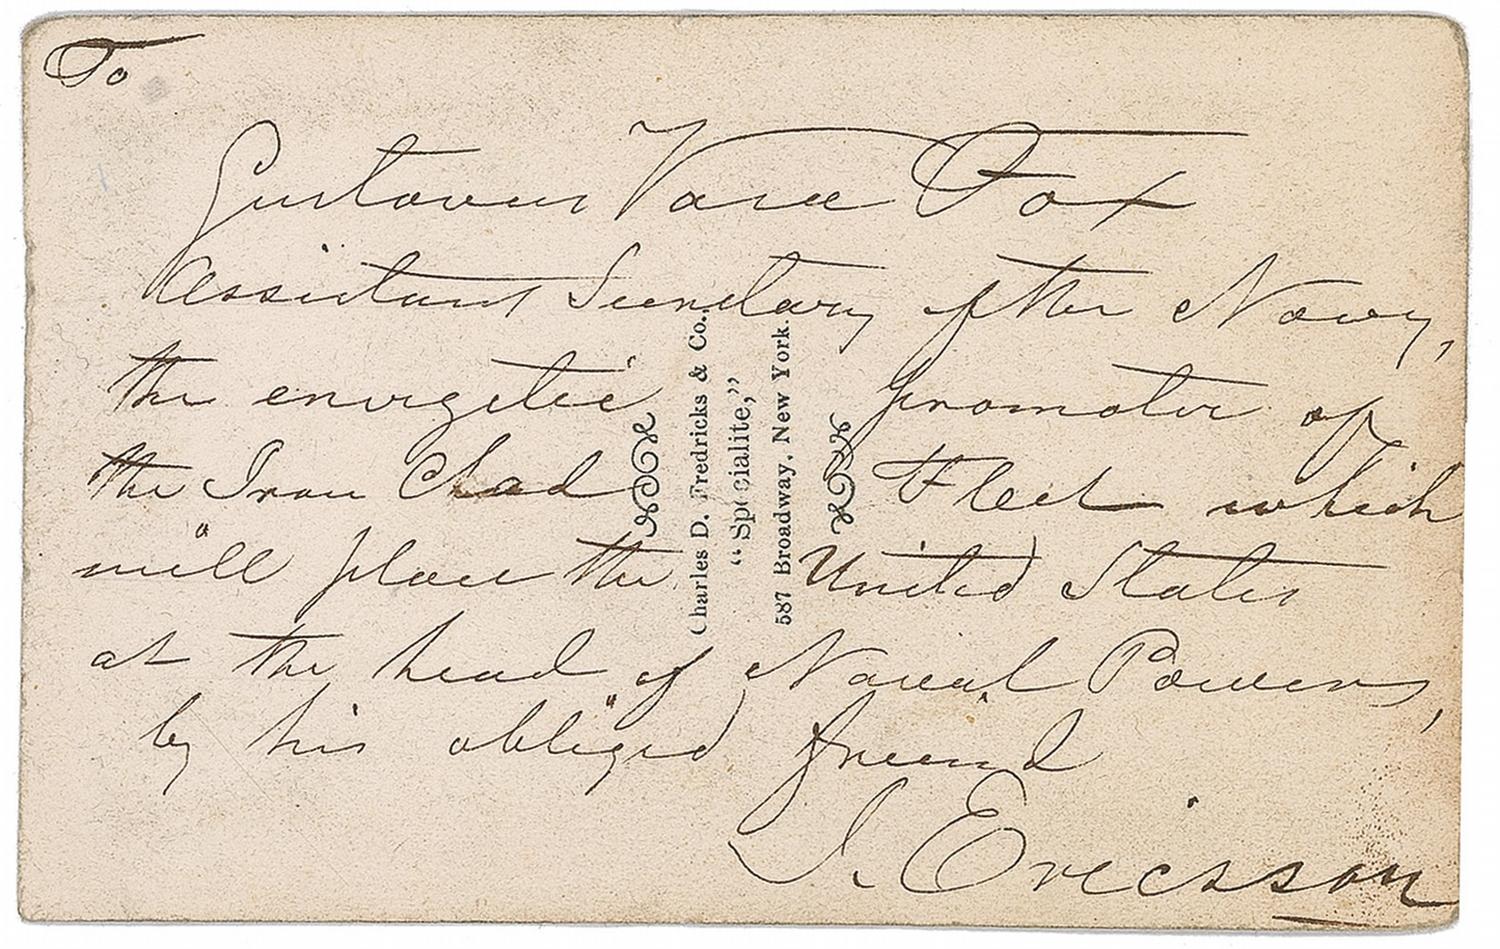 To
Gustavus Vasa Fox
Assistant Secretary of the Navy,
the energetic promoter of
the Iron Clad Fleet which
will place the United States
at the head of Naval Powers,
by his obliged friend
J. Ericsson
Charles D. Fredricks & Co.,
"Specialite,"
587 Broadway, New York.